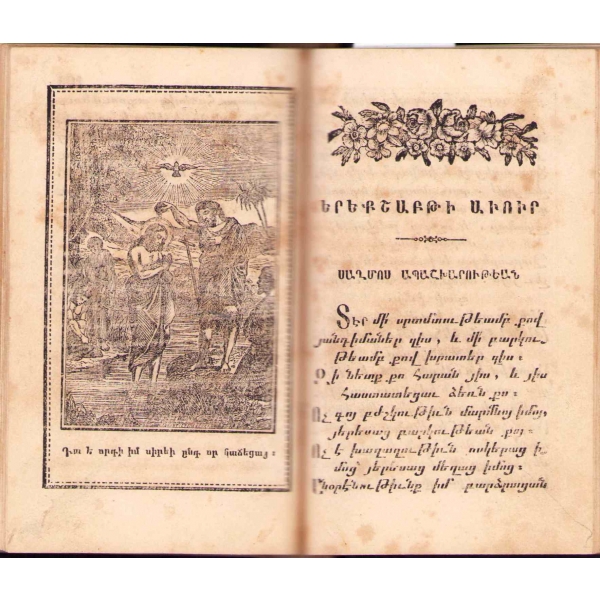 Դա է որդի իմ սիրելի ընդ որ հաճեցայ։
ԵՐԵՔՇԱԲԹԻ ԱՒՈՒՐ
ՍԱՂՄՈՍ ԱՊԱՇԽԱՐՈՒԹԵԱՆ
Տէր մի սրտմտութեամբ քով
յանդիմաներ զիս, և մի բարկու-
թեամբ քով խրատեր զիս։
Զի նետք քո հարան յիս, և յիս
հաստատեցաւ ձեռն քո։
Ոչ գոյ բժշկութիւն մարմնոյ իմոյ,
յերեսաց բարկութեան քոյ։
Ոչ է խաղաղութիւն ոսկերաց ի-
մոց՝ յերեսաց մեղաց իմոց։
Անօրէնութիւնք իմ բարձրացան